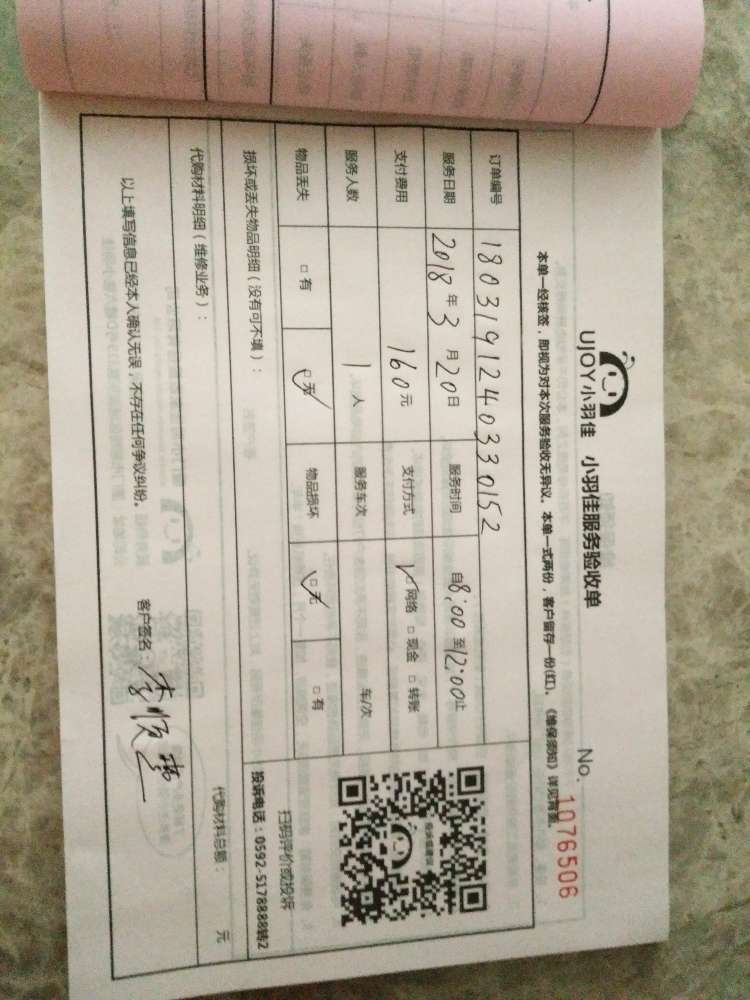 UJOY小羽佳 小羽佳服务验收单
No. 1076506
本单一经核签，即视为对本次服务验收无异议。本单一式两份，客户留存一份(红)。《维保须知》详见背面。
订单编号 1803191240330152
服务日期 2018年3月20日 服务时间 自8:00至12:00止
支付费用 160元 支付方式 ☑网络 □现金 □转账
服务人数 1人 服务车次 车/次
物品丢失 □有 ☑无 物品损坏 ☑无 □有
损坏或丢失物品明细（没有可不填）：
扫码评价或投诉
投诉电话：0592-5178888转2
代购材料明细（维修业务）：
代购材料总额： 元
以上填写信息已经本人确认无误，不存在任何争议纠纷。
客户签名：